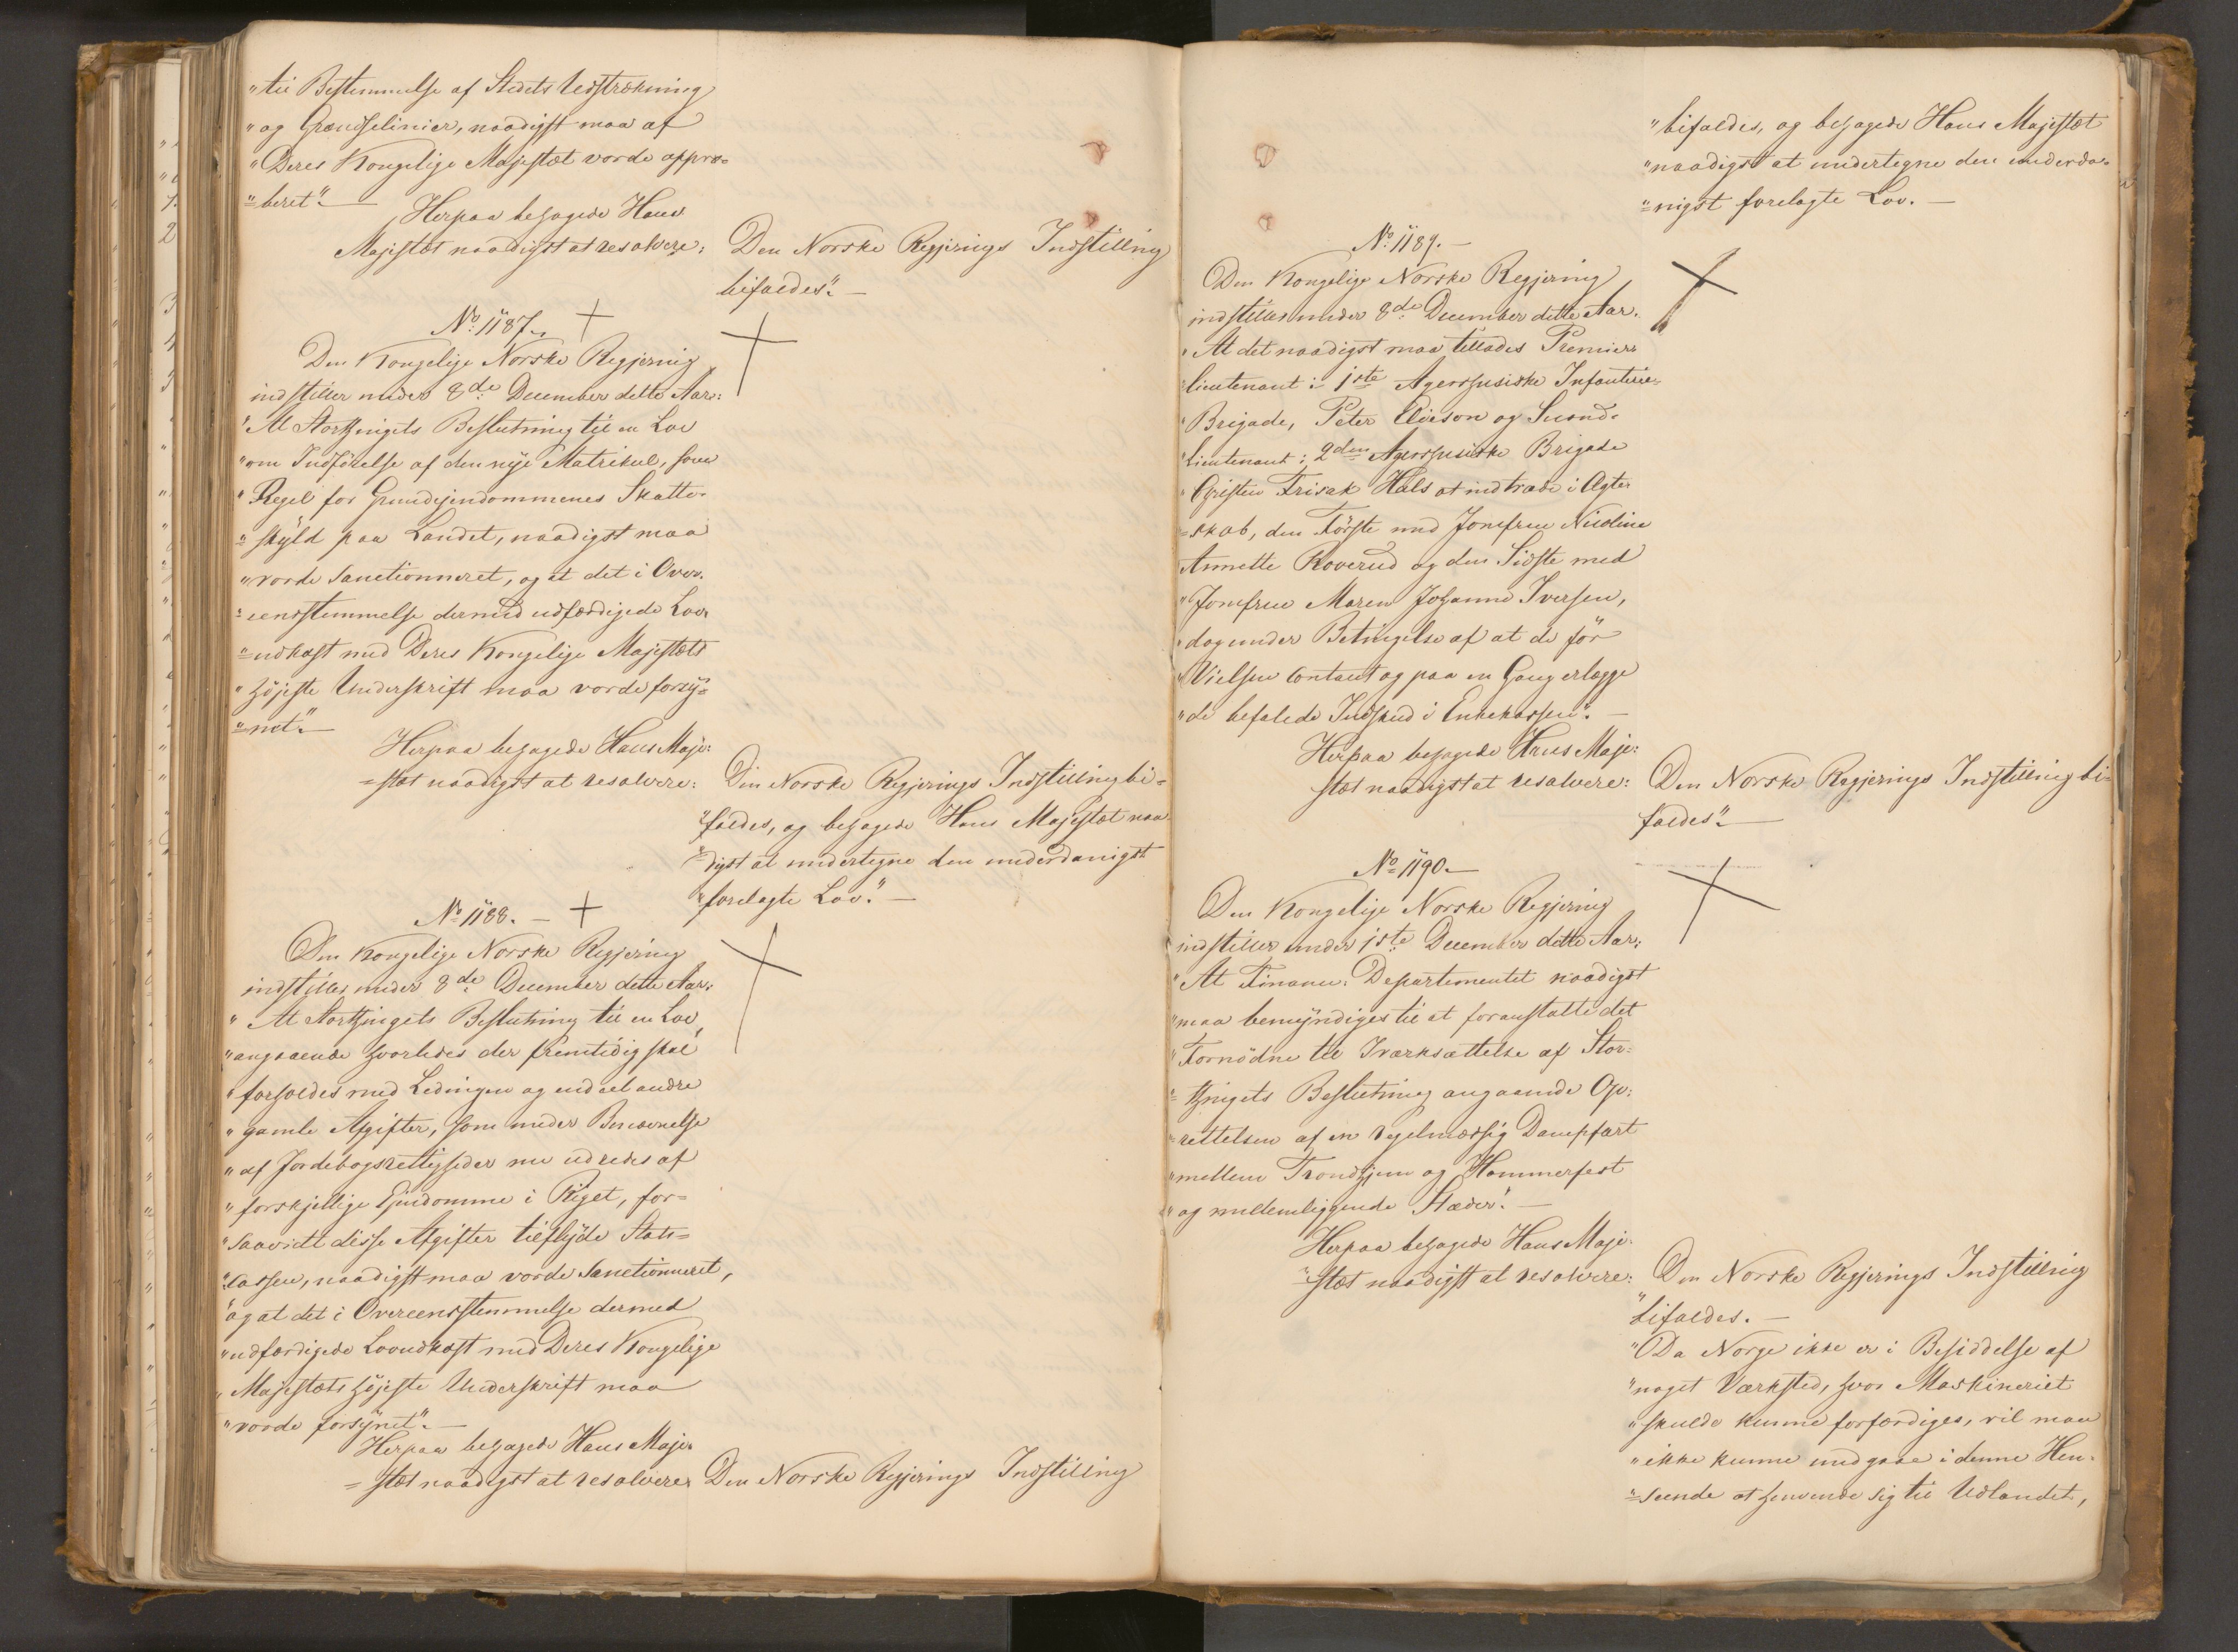 "til Bestemmelse af Stedets Udstrækning
"og Grændselinier, naadigst maa af
"Deres Kongelige Majestæt vorde appro=
"=beret". —
Herpaa behagede Hans
Majestæt naadigst at resolvere: Den Norske Regjerings Indstilling
bifaldes". —
No. 1187. +
Den Kongelige Norske Regjering
indstiller under 8de December dette Aar:
"At Storthingets Beslutning til en Lov
"om Indförelse af den nye Matrikul, som
"Regel for Grundejendommenes Skatte-
"=skyld paa Landet, naadigst maa
"vorde Sanctionneret, og at det i Over-
"=eensstemmelse dermed udfærdigede Lov-
"=udkast med Deres Kongelige Majestæts
"höjeste Underskrift maa vorde forsy=
"=net". —
Herpaa behagede Hans Maje:
=stæt naadigst at resolvere: Den Norske Regjerings Indstilling bi=
"faldes, og behagede Hans Majestæt naa-
"digst at undertegne den underdanigst
"forelagte Lov." —
No. 1188. — +
Den Kongelige Norske Regjering
indstiller under 8de December dette Aar:
"At Storthingets Beslutning til en Lov,
"angaaende hvorledes der fremtidig skal
"forholdes med Ledingen og endeel andre
"gamle Afgifter, som under Benævnelse
"af Jordebogsrettigheder nu udredes af
"forskjellige Ejendomme i Riget, for=
"saavidt disse Afgifter tilflyde Stats=
"cassen, naadigst maa vorde Sanctionneret,
"og at det i Overeensstemmelse dermed
"udfærdigede Lovudkast med Deres Kongelige
"Majestæts höjeste Underskrift maa
"vorde forsynet". —
Herpaa behagede Hans Maje-
=stæt naadigst at resolvere: Den Norske Regjerings Indstilling
"bifaldes, og behagede Hans Majestæt
"naadigst at undertegne den underda-
"=nigst forelagte Lov. —
No. 1189. —
Den Kongelige Norske Regjering
indstiller under 8de December dette Aar:
"At det naadigst maa tillades Premier-
"lieutenant i 1ste Agershusiske Infanterie-
"Brigade, Peter Elieson og Second-
"Lieutenant i 2den Agershusiske Brigade
"Christen Frisak Hals at indtræde i Ægte-
"=skab, den Förste med Jomfrue Nicoline
Annette Roverud og den Sidste med
"Jomfrue Maren Johanne Iversen,
"dog under Betingelse af at de för
"Vielsen contant og paa en Gang erlægge
"de befalede Indskud i Enkekassen". —
Herpaa behagede Hans Maje:
stæt naadigst at resolvere: Den Norske Regjerings Indstilling bi=
faldes". —
No. 1190. —
Den Kongelige Norske Regjering
indstiller under 1ste December dette Aar:
"At Finance-Departementet naadigst
"maa bemyndiges til at foranstalte det
"Fornödne til Iværksættelse af Stor=
"=thingets Beslutning angaaende Op:
"=rettelsen af en regelmæssig Dampfart
"mellem Trondhjem og Hammerfest
"og mellemliggende Stæder". —
Herpaa behagede Hans Maje-
=stæt naadigst at resolvere: Den Norske Regjerings Indstilling
"bifaldes. —
"Da Norge ikke er i Besiddelse af
"noget Værksted, hvor Maskineriet
"skulde kunne forfærdiges, vil man
"ikke kunne undgaae i denne Hen-
"=seende at henvende sig til Udlandet,